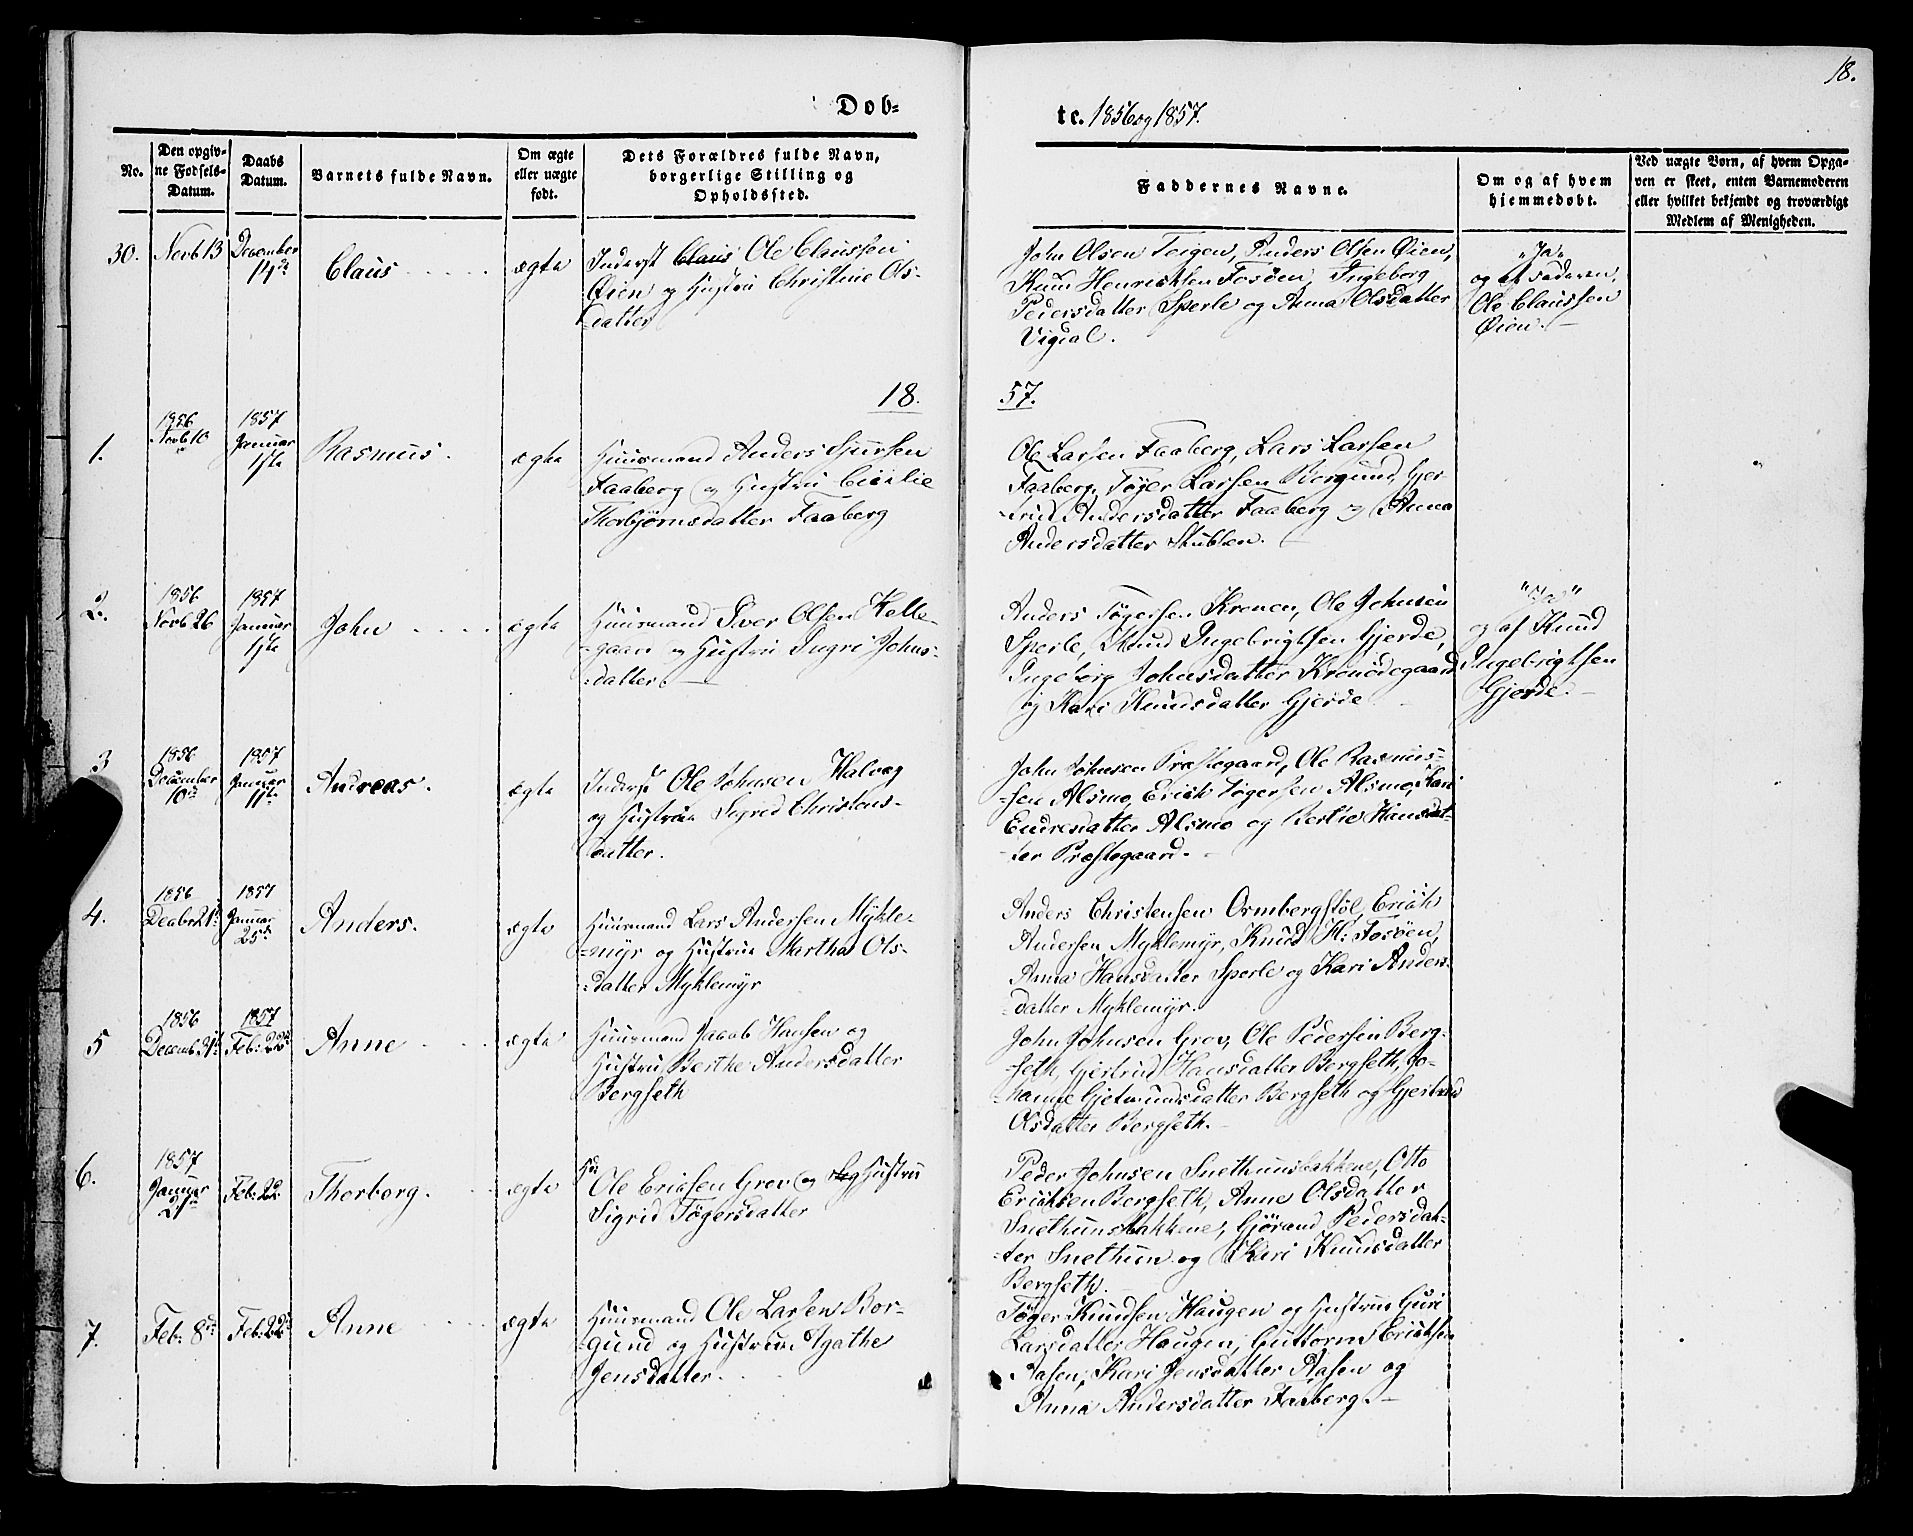 18.
Dob-
te. 1856 og 1857.
No.
Den opgiv-
ne Fødsels-
Datum.
Daabs
Datum.
Barnets fulde Navn.
Om ægte
eller uægte
født.
Dets Forældres fulde Navn,
borgerlige Stilling og
Opholdssted.
Faddernes Navne.
Om og af hvem
hjemmedøbt.
Ved uægte Børn, af hvem Opga-
ven er skeet, enten Barnemoderen
eller hvilket bekjendt og troværdigt
Medlem af Menigheden.
30.
Novb 13
December
14de
Claus
ægte
Inderst Claus Ole Claussen
Øien og Hustru Christine Ols-
datter
John Olsen Teigen, Anders Olsen Øien,
Knud Henriksen Fosøen, Ingeborg
Pedersdatter Sperle og Anna Olsdatter
Vigdal.
"Ja"
og af Faderen,
Ole Claussen
Øien.
18
57.
1.
1856
Novb 10
1857
Januar
1ste
Rasmus
ægte
Huusmand Anders Sjursen
Faaberg og Hustru Cicilie
Thorbjørnsdatter Faaberg
Ole Larsen Faaberg, Lars Larsen
Faaberg, Tøger Larsen Borgund, Gjer-
trud Andersdatter Faaberg og Anna
Andersdatter Stubben.
2.
1856
Novb 26
1857
Januar
1ste
John
ægte
Huusmand Iver Olsen Kelle-
gaard og Hustru Ingri Johns-
datter
Anders Tøgersen Kronen, Ole Johnsen
Sperle, Knud Ingebrigtsen Gjerde,
Ingeborg Johnsdatter Kronodegaard
og Kari Knudsdatter Gjerde
"Ja"
og af Knud
Ingebrigtsen
Gjerde.
3
1856
December
10de
1857
Januar
11te
Andreas.
ægte
Inderst Ole Johnsen Halvæg
og Hustrue Sigred Christens-
datter.
John Johnsen Præstegaard, Ole Rasmus-
sen Alsmo, Erich Tøgersen Alsmo, Kari
Endresdatter Alsmo og Bertie Hansdat-
ter Præstegaard.
4.
1856
Decbr 21
1857
Januar
25de
Anders.
ægte
Huusmand Lars Andersen Mykle-
myr og Hustrue Martha Ols-
datter Myklemyr
Anders Christensen Ormbergstøl, Erich
Andersen Myklemyr, Knud H: Fosøen,
Anna Hansdatter Sperle og Kari Anders-
datter Myklemyr.
5
1856
Decemb: 21
1857
Feb: 22
Anne
ægte
Huusmand Jacob Hansen og
Hustru Berthe Andersdatter
Bergseth
John Johnsen Grov, Ole Pedersen Berg-
seth, Gjertrud Hansdatter Bergseth, Jo-
hanne Gjetmundsdatter Bergseth og Gjertrud
Olsdatter Bergseth.
6.
1857
Januar
21
Feb: 22
Thorborg.
ægte
Ole Ericksen Grov og Hustru
Sigrid Tøgersdatter
Peder Johnsen Snethunsbakkene, Otto
Ericksen Bergseth, Anne Olsdatter
Snethunsbakkene, Gjørand Pedersdat-
ter Snethun og Kari Knudsdatter
Bergseth.
7.
Feb: 8de
Feb: 22
Anne
ægte
Huusmand Ole Larsen Bor-
gund og Hustrue Agathe
Jensdatter
Tøger Knudsen Haugen og Hustrue Guri
Larsdatter Haugen, Guttorm Ericksen
Aasen, Kari Jensdatter Aasen og
Anna Andersdatter Faaberg.